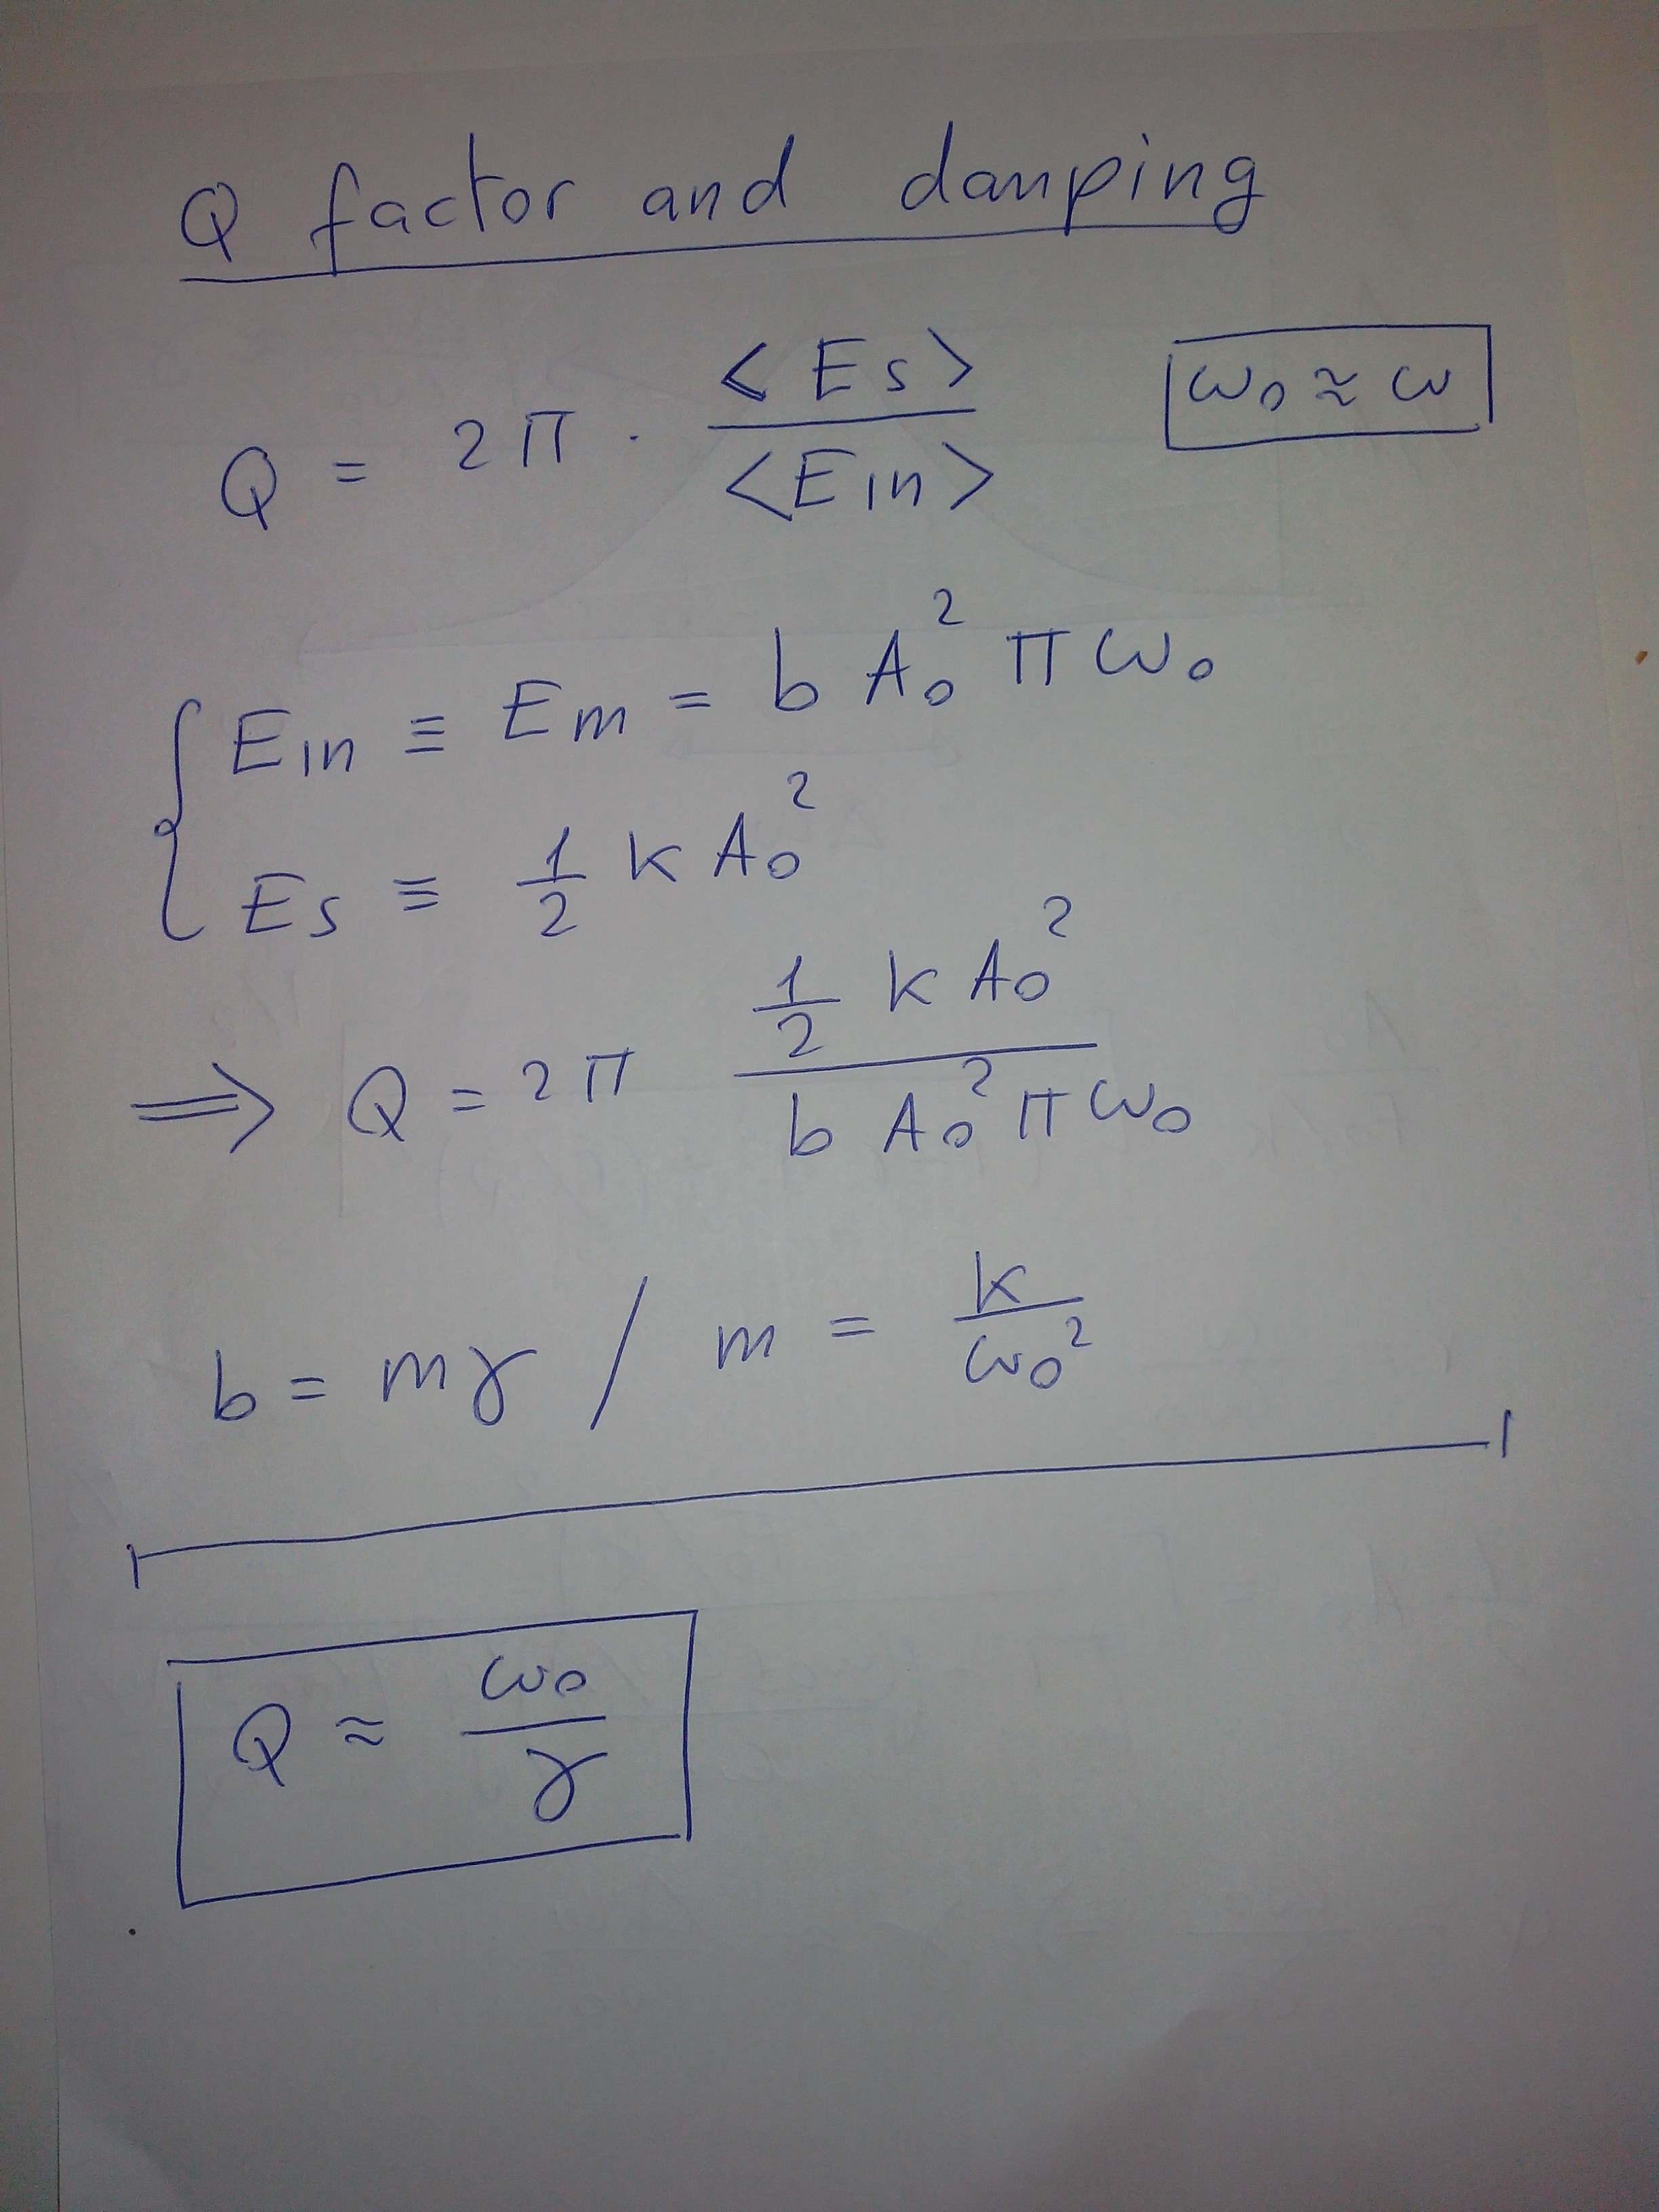 Q factor and damping
Q = 2π · <Es> / <Ein>
ω₀ ≈ ω
Ein ≡ Em = b A₀² π ω₀
Es ≡ 1/2 k A₀²
⇒ Q = 2π (1/2 k A₀²) / (b A₀² π ω₀)
b = mγ / m = k/ω₀²
Q ≈ ω₀/γ